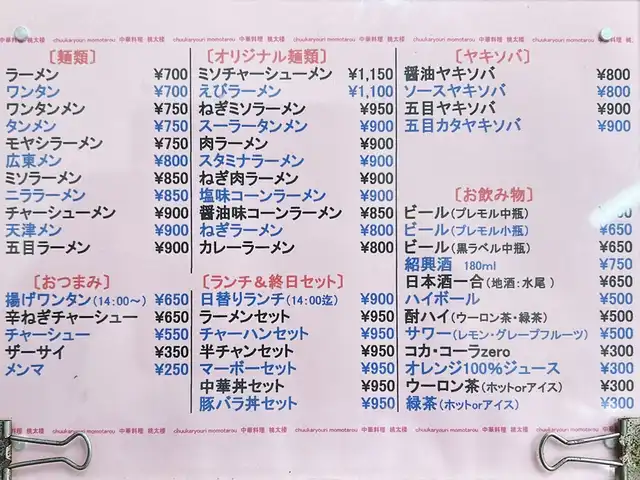 中華料理 桃太楼 chuukaryouri momotarou 中華料理 桃太楼 chuukaryouri momotarou 中華料理 桃太楼 chuukaryouri momotarou 中華料理 桃太楼 chuukaryouri momotarou
〔麺類〕
ラーメン ¥700
ワンタン ¥700
ワンタンメン ¥750
タンメン ¥750
モヤシラーメン ¥750
広東メン ¥800
ミソラーメン ¥850
ニララーメン ¥850
チャーシューメン ¥900
天津メン ¥900
五目ラーメン ¥900
〔おつまみ〕
揚げワンタン(14:00〜) ¥650
辛ねぎチャーシュー ¥650
チャーシュー ¥550
ザーサイ ¥350
メンマ ¥250
〔オリジナル麺類〕
ミソチャーシューメン ¥1,150
えびラーメン ¥1,100
ねぎミソラーメン ¥950
スーラータンメン ¥900
肉ラーメン ¥900
スタミナラーメン ¥900
ねぎ肉ラーメン ¥900
塩味コーンラーメン ¥900
醤油味コーンラーメン ¥850
ねぎラーメン ¥800
カレーラーメン ¥800
〔ランチ&終日セット〕
日替りランチ(14:00迄) ¥900
ラーメンセット ¥950
チャーハンセット ¥950
半チャンセット ¥950
マーボーセット ¥950
中華丼セット ¥950
豚バラ丼セット ¥950
〔ヤキソバ〕
醤油ヤキソバ ¥800
ソースヤキソバ ¥800
五目ヤキソバ ¥900
五目カタヤキソバ ¥900
〔お飲み物〕
ビール(プレモル中瓶)
ビール(プレモル小瓶) ¥650
ビール(黒ラベル中瓶) ¥650
紹興酒 180ml ¥750
日本酒一合(地酒:水尾) ¥650
ハイボール ¥500
酎ハイ(ウーロン茶・緑茶) ¥500
サワー(レモン・グレープフルーツ) ¥500
コカ・コーラzero ¥300
オレンジ100%ジュース ¥300
ウーロン茶(ホットorアイス) ¥300
緑茶(ホットorアイス) ¥300
chuukaryouri momotarou 中華料理 桃太楼 chuukaryouri momotarou 中華料理 桃太楼 chuukaryouri momotarou 中華料理 桃太楼 chuukaryouri momotarou